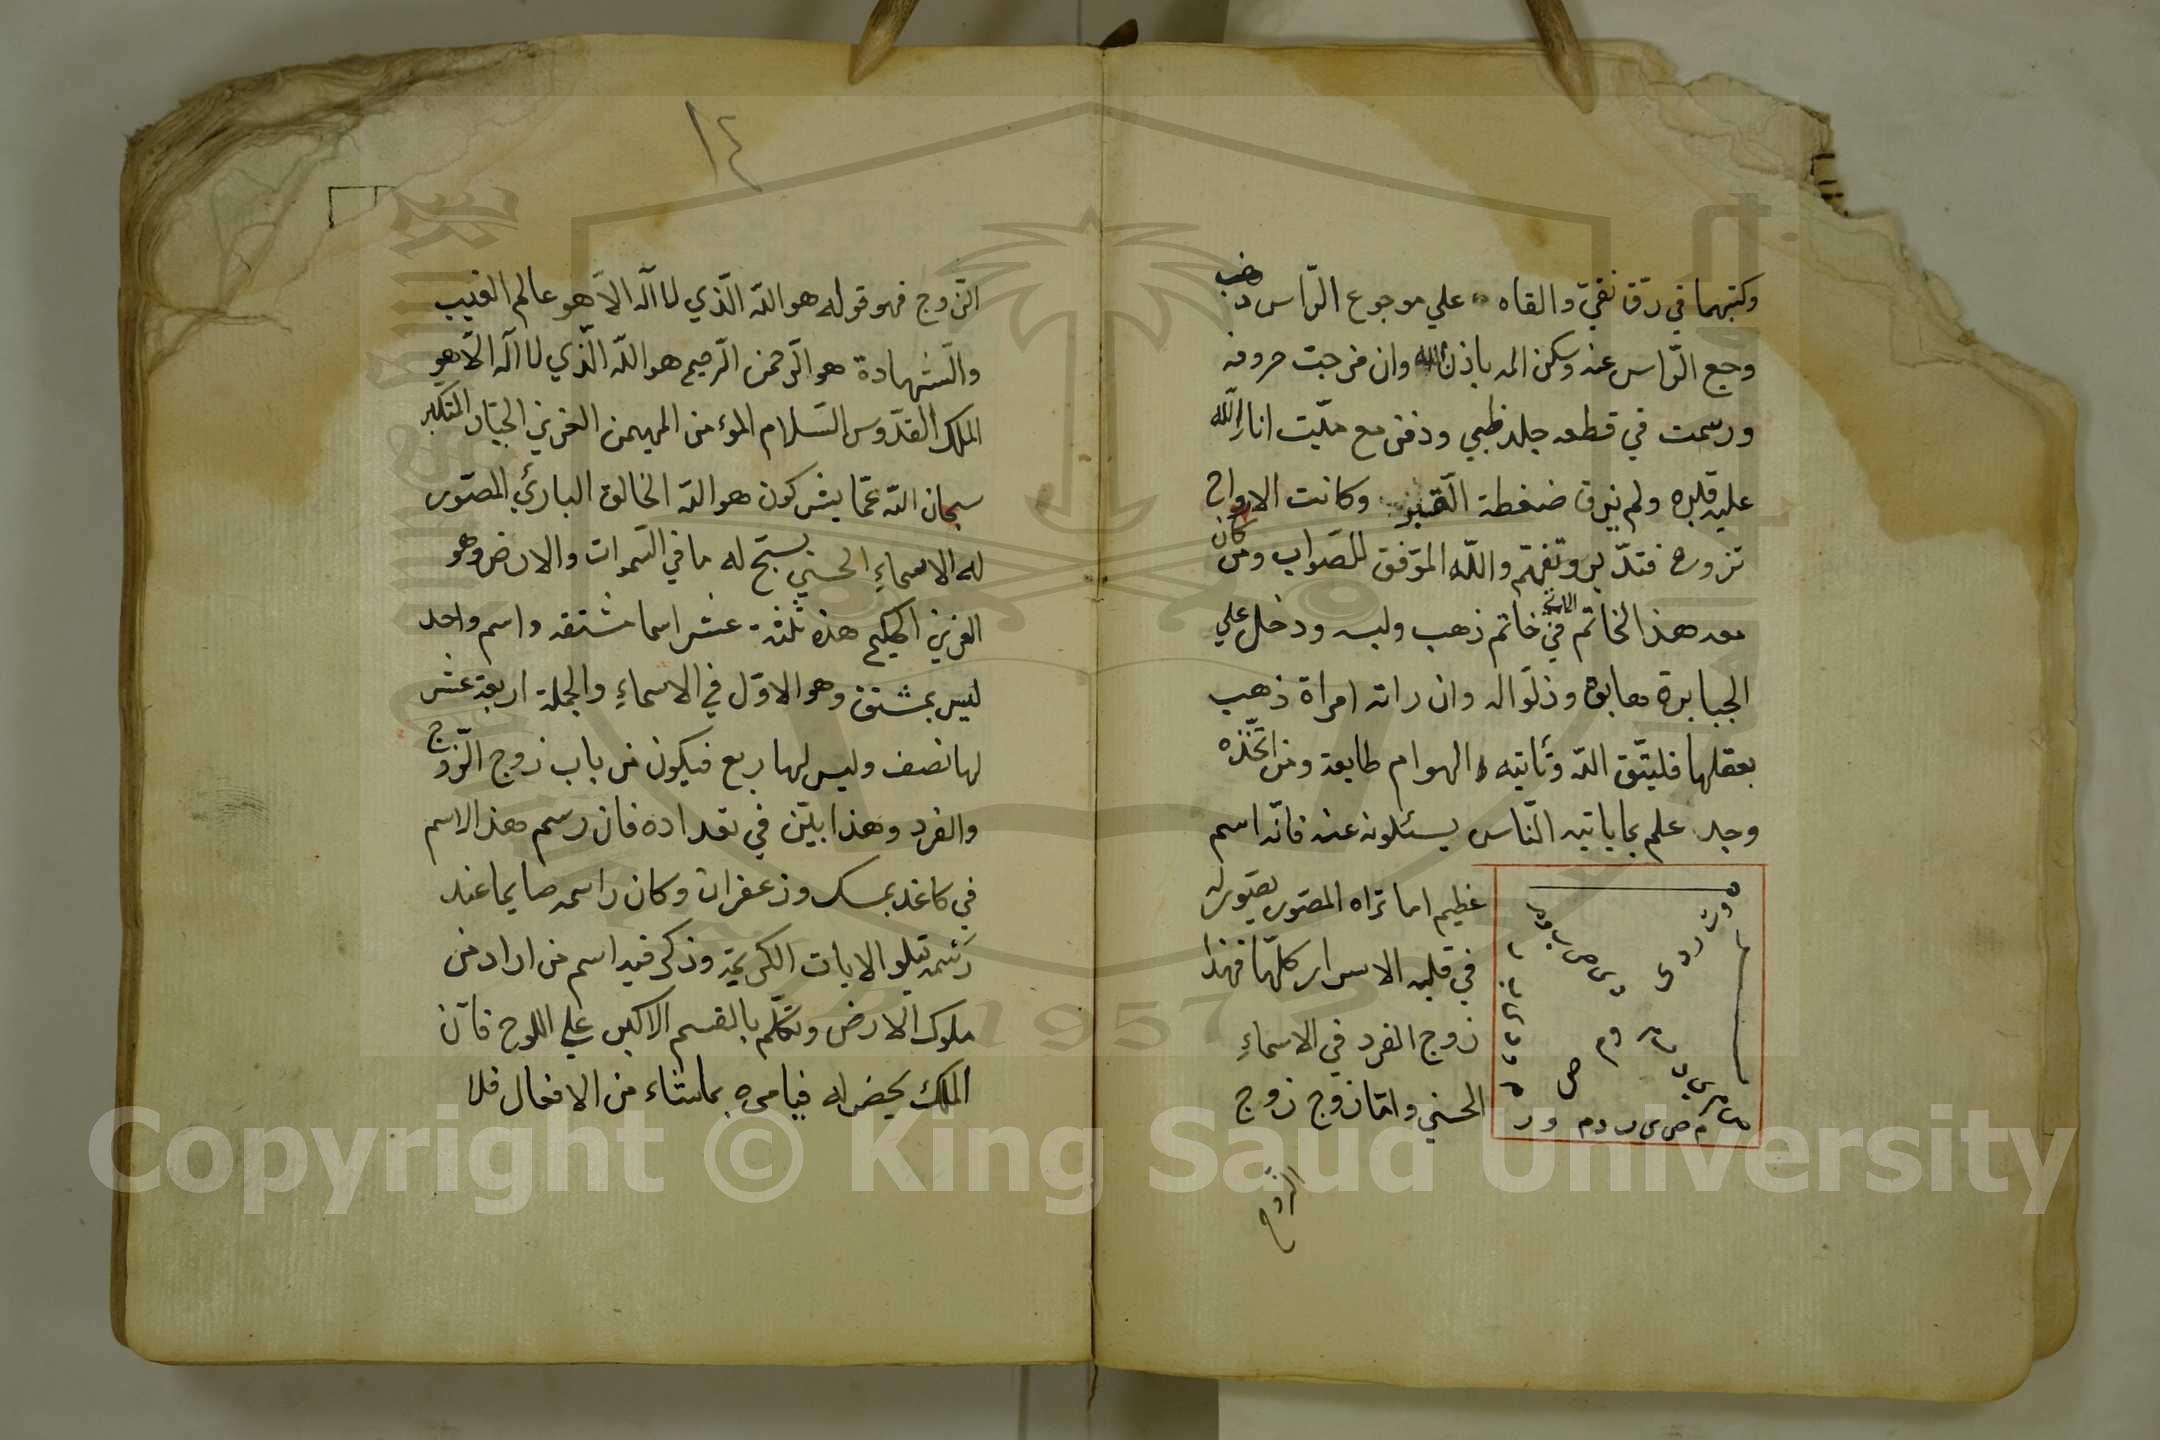 وكتبهما في رق نقيّ والقاه علي موجوع الرّاس ذهب
وجع الرّاس عنه وسكن المه باذن الله وان مزجت حروفه
ورسمت في قطعه جلد ظبي ودفن مع ميّت انار الله
عليه قبره ولم يرق ضغطة القبر وكانت الارواح
تزوره فتدّبر وتفهّم واللّه الموّفق للصّواب ومن كان
معه هذا الخاتم الاتي في خاتم ذهب ولبسه ودخل علي
الجبابرة هابوه وذلّوا له وان راته امراة ذهب
بعقلها فليتّق اللّه وتأتيه الهوام طايعة ومن اتّخذه
وجد علم بما ياتيه النّاس يسئلونه عنه فانّه اسم
عظيم اما تراه المصّور يصّور له
في قلبه الاسرار كلّها فهذا
زوج الفرد في الاسماءِ
الحسني وامّا زوج زوج
الزوج
١٤
الزّوج فهو قوله هو اللّه الّذي لا اله الاّ هو عالم الغيب
والشّهادة هو الرّحمن الرّحيم هو اللّه الّذي لا اله الاّ هو
الملك القدّوس السّلام المؤمن المهيمن العزيز الجبّار المتكبر
سبحان اللّه عمّا يشركون هو اللّه الخالق البارئ المصّور
له الاسماءِ الحسني يسبّح له ما في السّموات والارض وهو
العزيز الحكيم هذه ثلثة عشر اسما مشتقه واسم واحد
ليس بمشتق وهو الاوّل في الاسماءِ والجملة اربعة عشر
لها نصف وليس لها ربع فيكون من باب زوج الزّوج
والفرد وهذا بيّن في تعداده فان رسم هذا الاسم
في كاغد بمسك وزعفران وكان راسمه صايما عند
رسمه يتلو الايات الكريمة وذكر فيه اسم من اراد من
ملوك الارض وتكلّم بالقسم الاكبر علي اللوح فانّ
الملك يحضر له فيامره بما شاء من الافعال فلا
Copyright © King Saud University
1957